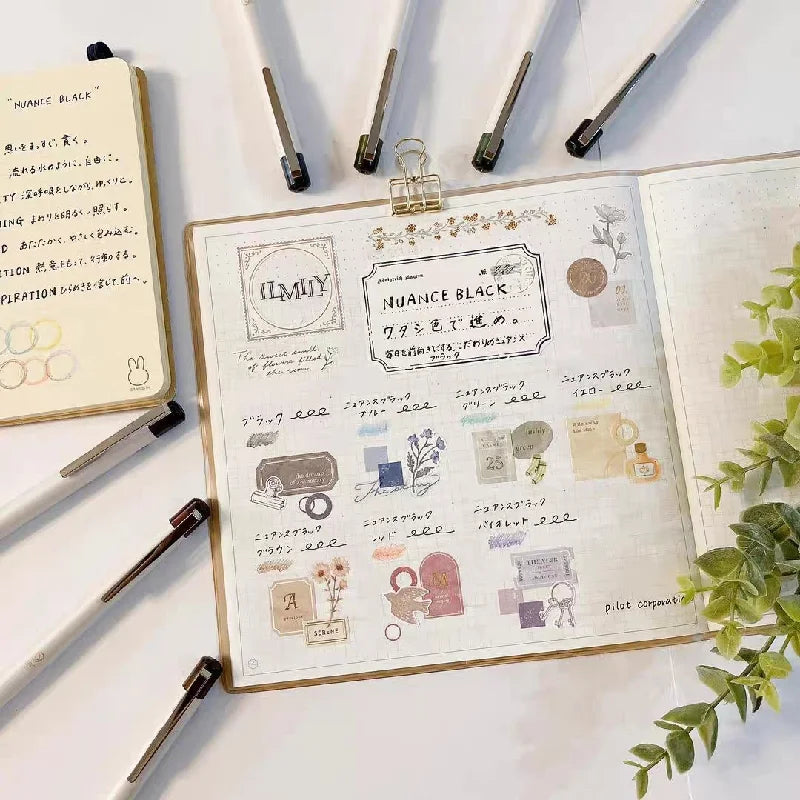 "NUANCE BLACK"
流れる水のように、自由に。
深呼吸をしながら、ゆっくりと。
より明るく、照らす。
あたたかく、やさしく包み込む。
PIRATION ひらめきを信じて、前へ。
ILMILY
The sweet smell
of flowers filled
the room.
NUANCE BLACK
ワタシ色で進め。
毎日を前向きにする、こだわりのニュアンス
ブラック
ブラック
ニュアンスブラック
ブルー
ニュアンスブラック
グリーン
ニュアンスブラック
イエロー
25
ニュアンスブラック
ブラウン
ニュアンスブラック
レッド
ニュアンスブラック
バイオレット
A
M
THEATER
pilot corporati